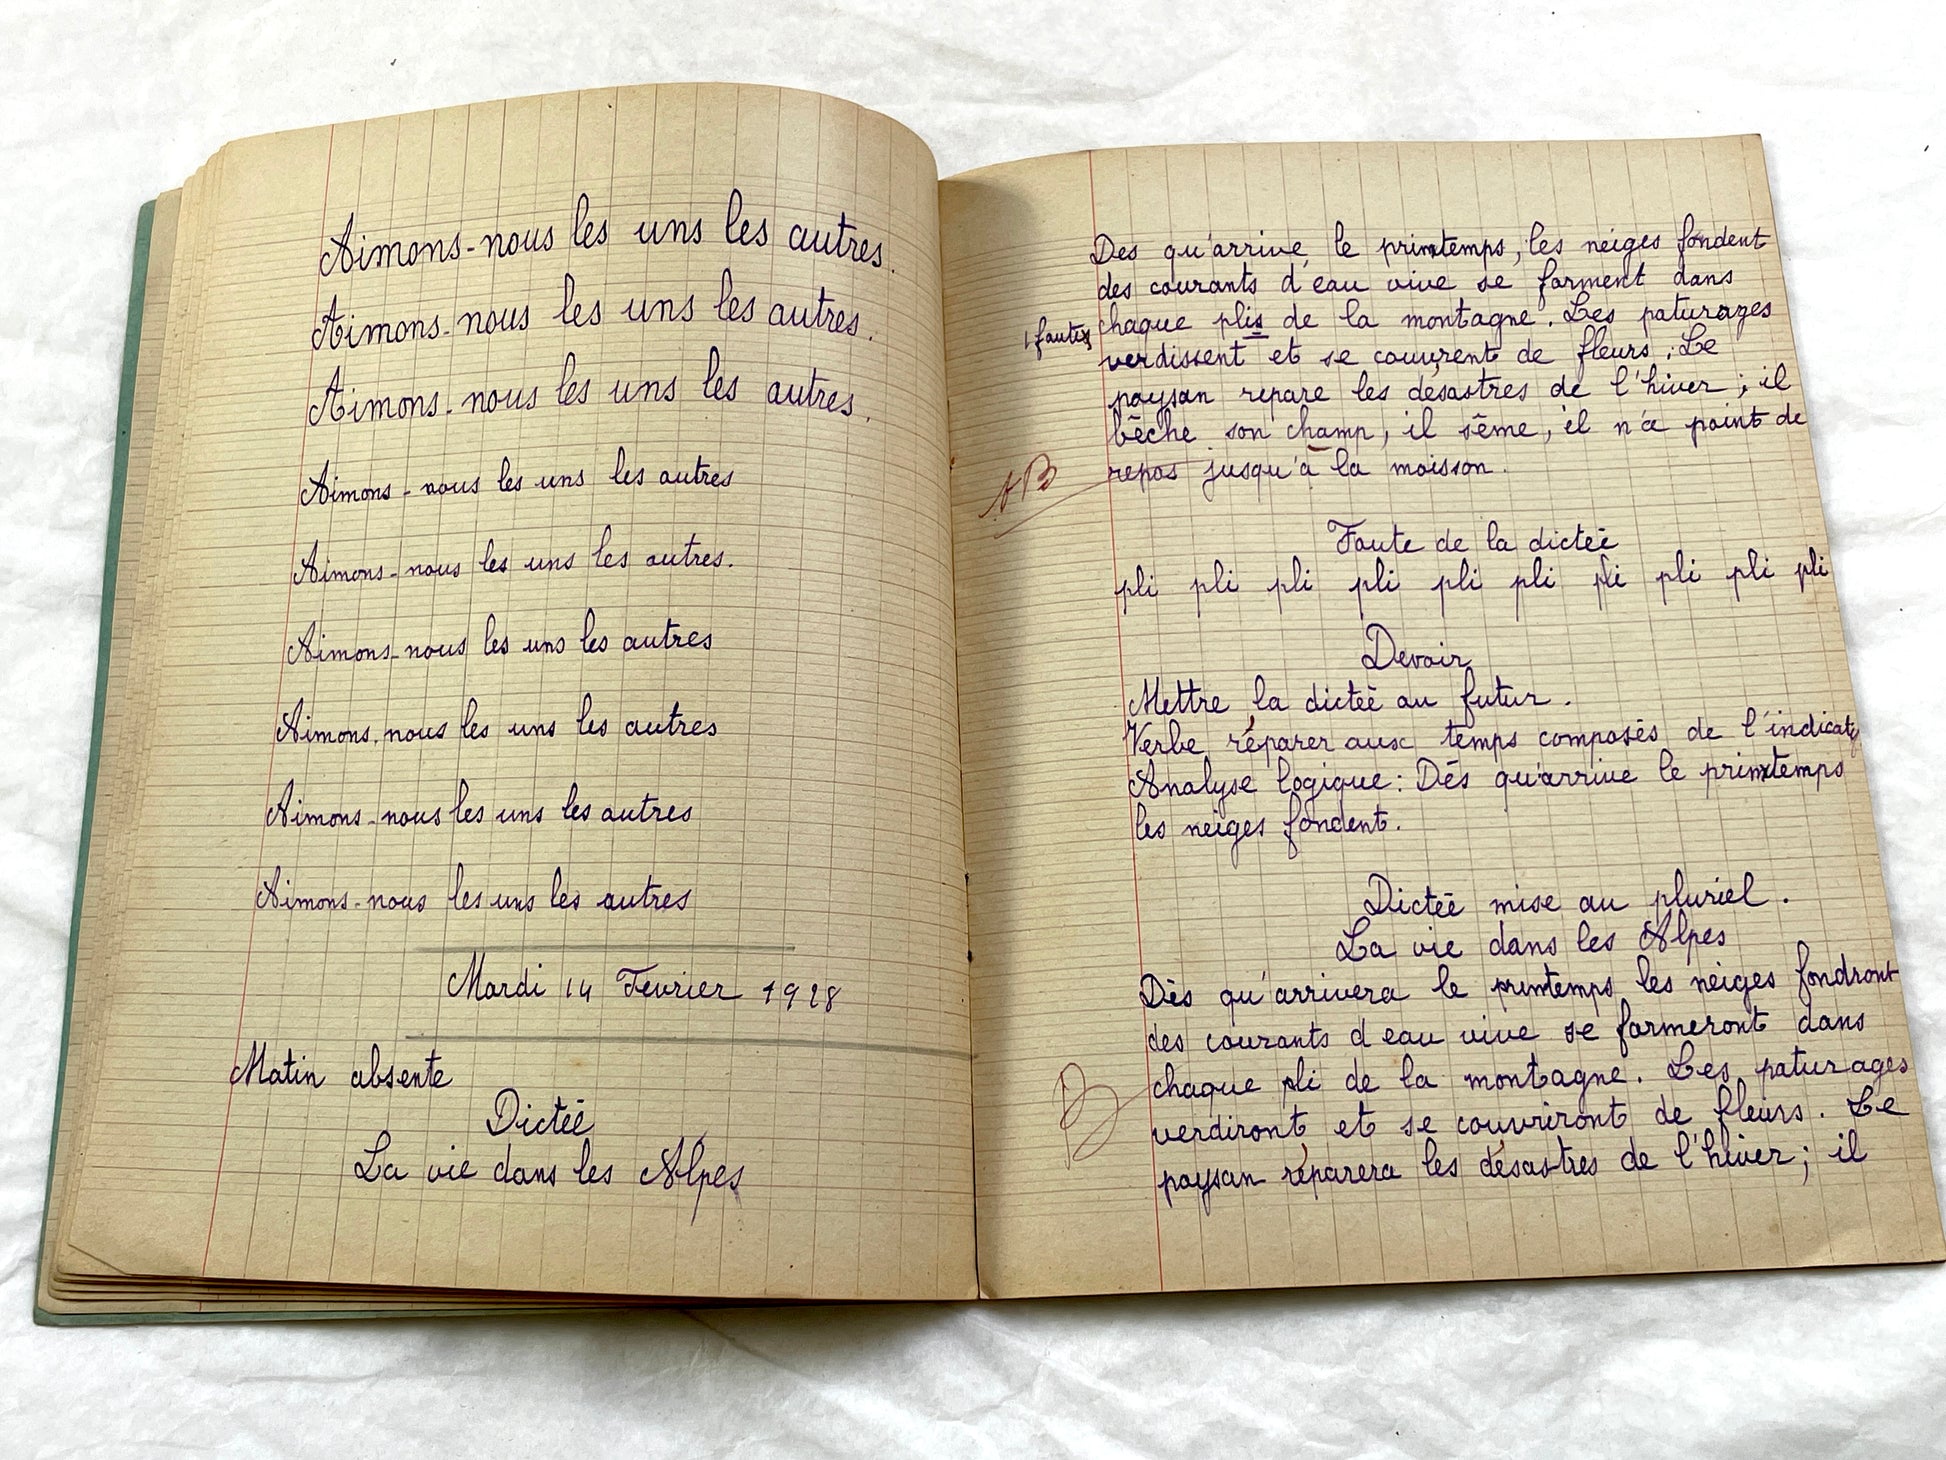 Aimons-nous les uns les autres.
Aimons-nous les uns les autres.
Aimons-nous les uns les autres.
Aimons-nous les uns les autres
Aimons-nous les uns les autres.
Aimons-nous les uns les autres
Aimons-nous les uns les autres
Aimons-nous les uns les autres
Aimons-nous les uns les autres
Mardi 14 Fevrier 1928
Matin absente
Dictée
La vie dans les Alpes
Des qu'arrive le printemps, les neiges fondent
des courants d'eau vive se forment dans
1 faute chaque plis de la montagne. Les paturages
verdissent et se couvrent de fleurs. Le
paysan repare les désastres de l'hiver ; il
bêche son champ, il sême, il n'a point de
repos jusqu'à la moisson.
TB
Faute de la dictée
pli pli pli pli pli pli pli pli pli pli
Devoir
Mettre la dictée au futur.
Verbe réparer aux temps composés de l'indicatif
Analyse logique : Dés qu'arrive le printemps
les neiges fondent.
Dictée mise au pluriel.
La vie dans les Alpes
Dès qu'arrivera le printemps les neiges fondront
des courants d eau vive se formeront dans
B chaque pli de la montagne. Les paturages
verdiront et se couvriront de fleurs. Le
paysan réparera les désastres de l'hiver ; il